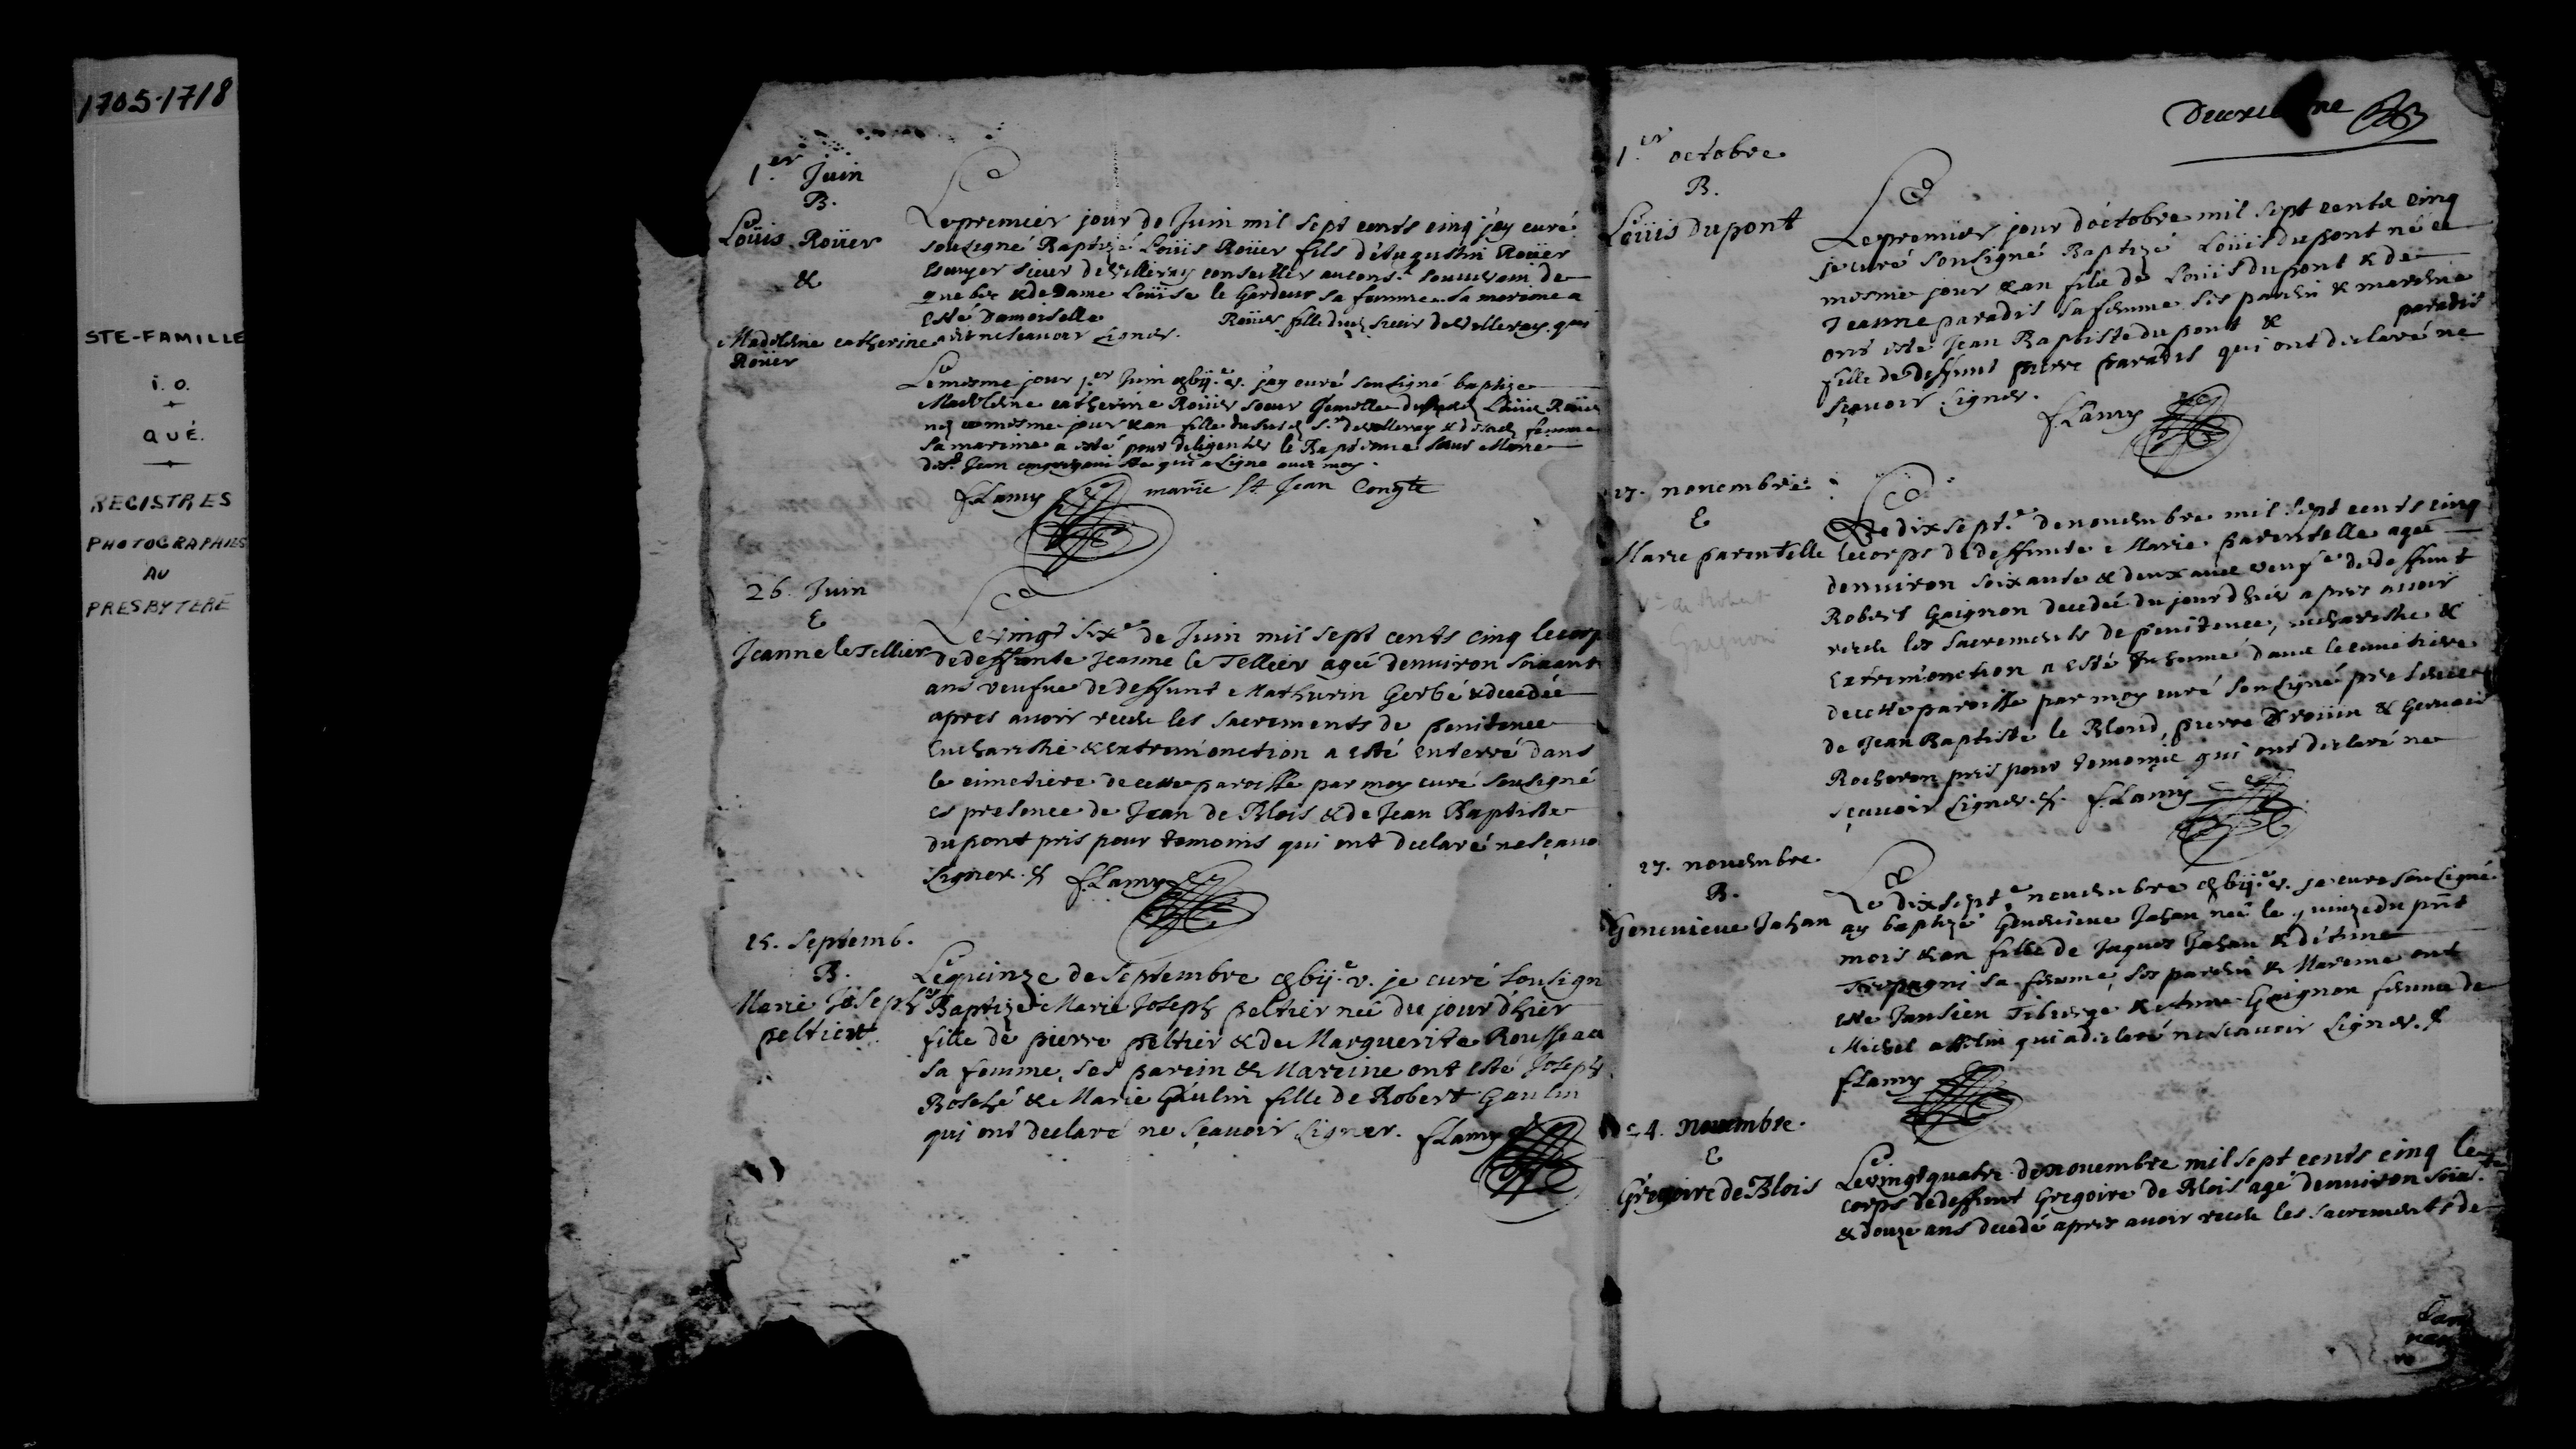 1705-1718
STE-FAMILLE
i. o.
QUÉ.
REGISTRES
PHOTOGRAPHIÉS
AU
PRESBYTERE
1.er Juin
B.
Loüis Roüer
&
Madelene catherine
Roüer
Le premier jour de Juin mil sept cents cinq j'ay curé
sousigné Baptizé Loüis Roüer fils d'Augustin Roüer
Escuyer sieur de villeray conseiller au cons.l souverain de
quebec & de Dame Loüise le Gardeur sa femme sa marine a
esté Damoiselle Roüer fille dud. sieur de villeray qui
a dit ne scavoir signer.
Le mesme jour 1.er Juin gbij.c v. j'ay curé sousigné baptize
Madelene catherine Roüer soeur Jumelle dud. Loüis Roüer
nez ce mesme jour & an fille du susd. S.r de villeray & de sad. femme
sa marine a esté pour diligenter le Baptesme soeur Marie
de S.t Jean congreganiste qui a signe avec moy.
f. Lamy marie St. Jean Congte
26. Juin
E
Jeanne le Tellier
Le vingt six.e de Juin mil sept cents cinq le corp
de deffunte Jeanne le Tellier agée denviron soixant
ans veufve de deffunt Mathurin Gerbé & decedée
apres avoir receu les sacrements de penitence
Eucharistie & extremonction a esté enterré dans
le cimetiere de cette paroisse par moy curé sousigné
es presence de Jean de Blois & de Jean Baptiste
dupont pris pour temoins qui ont declaré ne sçavo
signer. &. f. Lamy
15. septemb.
B.
Marie Joseph
peltier
Le quinze de septembre gbij.c v. je curé sousign
Baptizé Marie Joseph peltier neé du jour dhier
fille de pierre peltier & de Marguerite Rousseau
sa femme, ses parein & Mareine ont esté Joseph
Bosché & Marie Gaulin fille de Robert Gaulin
qui ont declaré ne sçavoir signer. f. Lamy
1.er octobre
B.
Loüis dupont
Le premier jour d'octobre mil sept cents cinq
je curé sousigné Baptizé Loüis dupont né ce
mesme jour & an fils de Loüis dupont & de
Jeanne paradis sa femme ses parein & mareine
ont esté Jean Baptiste dupont & paradis
fille de deffunt pierre paradis qui ont declaré ne
sçavoir signer.
f. Lamy
17. novembre
E
Marie parentelle
Ve de Robert
Gaignon
Le dix sept.e de novembre mil sept cents cinq
le corps de deffunte Marie parentelle agée
denviron soixante & deux ans veufve de deffunt
Robert Gaignon decedée du jour dhier apres avoir
receu les sacrements de penitence, eucharistie &
Extremonction a esté Inhumé dans le cimetiere
de cette paroisse par moy curé sousigné presence
de Jean Baptiste le Blond, pierre Droüin & Gervais
Rocheron pris pour temoins qui ont declaré ne
sçavoir signer. &. f. Lamy
17. novembre.
B.
Genevieve Jahan
Le dix sept.e novembre gbij.c v. je curé sousigné
ay baptizé Genevieve Jahan neé le quinze du pnt
mois & an fille de Jaques Jahan & d'Anne
Trepagni sa femme, ses parein & Mareine ont
esté Jansien Tiberge & Anne Gaignon femme de
Michel asselin qui a declaré ne scavoir signer. &
f. Lamy
24. novembre.
E
Gregoire de Blois
Le vingt quatre de novembre mil sept cents cinq le
corps de deffunt Gregoire de Blois agé denviron soix.te
& douze ans decedé apres avoir receu les sacrements de